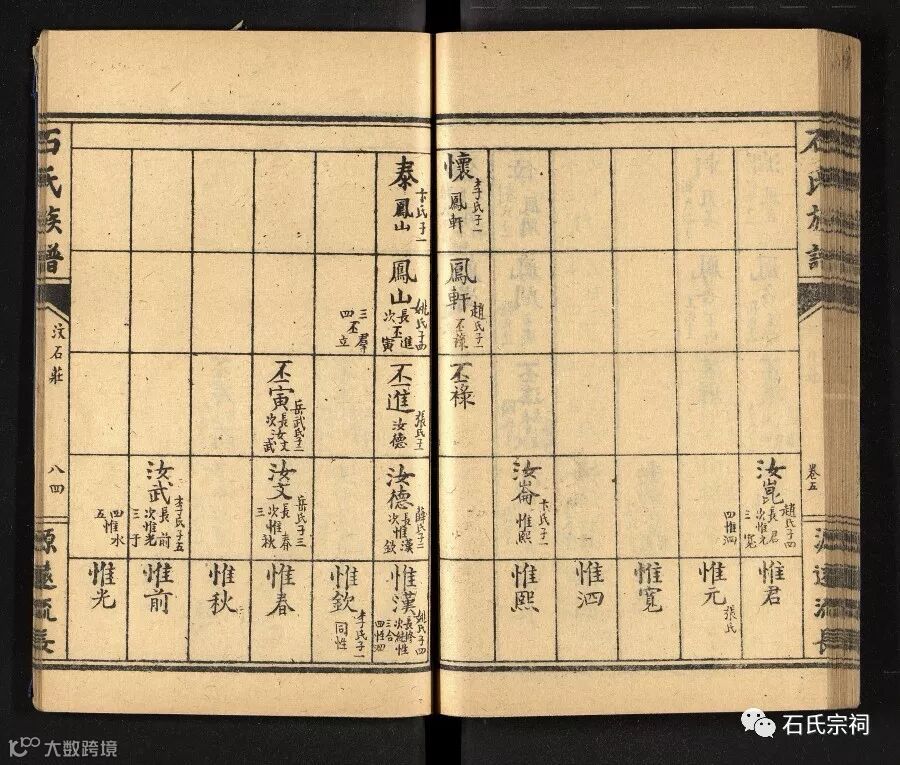 石氏族譜
卷五
源遠流長
懷
李氏子一
鳳軒
鳳軒
趙氏子一
丕祿
丕祿
汝崑
趙氏子四
長惟君
次惟元
三寬
四惟泗
汝崙
卞氏子一
惟熙
惟君
惟元
張氏
惟寬
惟泗
惟熙
泰
卞氏子一
鳳山
鳳山
姚氏子四
長丕進
次丕寅
三羣
四丕立
丕進
張氏子一
汝德
丕寅
岳武氏子二
長汝文
次汝武
汝德
薛氏子二
長惟漢
次惟欽
汝文
岳氏子三
長春
次惟秋
三
汝武
李氏子五
長前
次惟光
三于
四惟水
五
惟漢
姚氏子四
長修性
次純性
三合
四性泗
惟欽
李氏子一
同性
惟春
惟秋
惟前
惟光
石氏族譜
汶石莊
八四
源遠流長
石氏宗祠
大数跨境